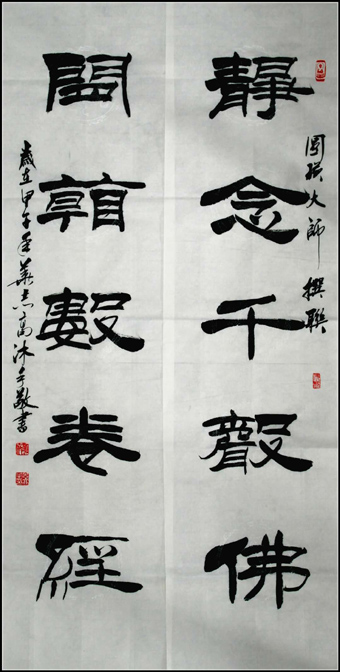 圓瑛大師 撰聯
靜念千聲佛
閒數卷經
歲在甲午年葉志高沐手敬書